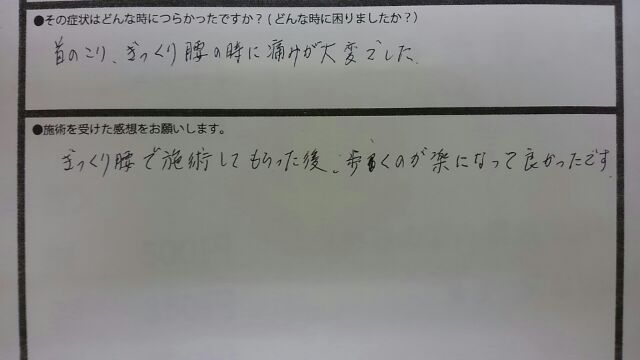 ●その症状はどんな時につらかったですか？(どんな時に困りましたか？)
首のこり、ぎっくり腰の時に痛みが大変でした。
●施術を受けた感想をお願いします。
ぎっくり腰で施術してもらった後、歩くのが楽になって良かったです。